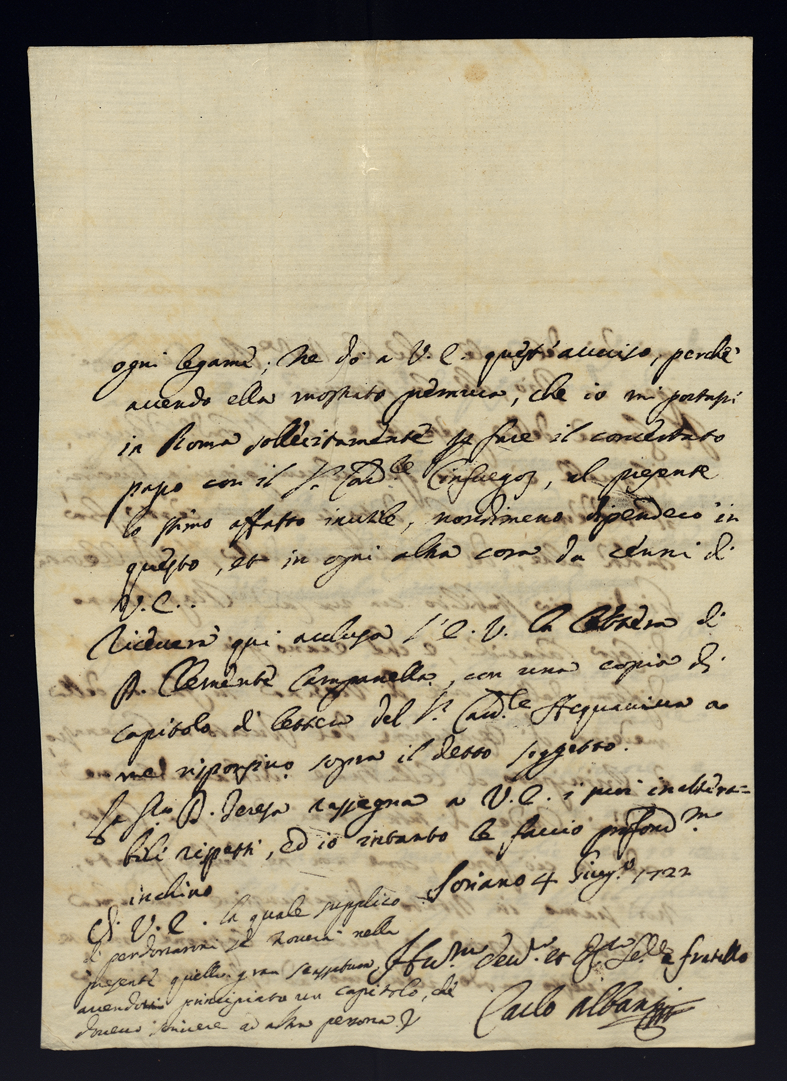 ogni legame; ne dò a V. E. quest'avviso, perche
avendo ella mostrato premura, che io mi portassi
in Roma sollecitamente p fare il concertato
passo con il Sr. Card.le Cinfuegos, al presente
lo stimo affatto inutile, nondimeno dipendero in
questo, et in ogni altra cosa da cenni di
V. E..
Ricevera qui acclusa l'E. V. la lettera di
D. Clemente Campanella, con una copia di
capitolo di lettera del Sr. Card.le Acquaviva a
me risponsivo sopra il detto soggetto.
La Sra D. Teresa rassegna a V. E. i suoi inaltera=
bili rispetti, ed io intanto le faccio profond.m
inchino
Soriano 4 Giug.o 1722
Di V. E. la quale supplico
di perdonarmi se troverà nella
presente quella gran scassatura,
avendo principiato un capitolo, che
dovevo scrivere ad altra persona
dev.o et fratello
Carlo Albani